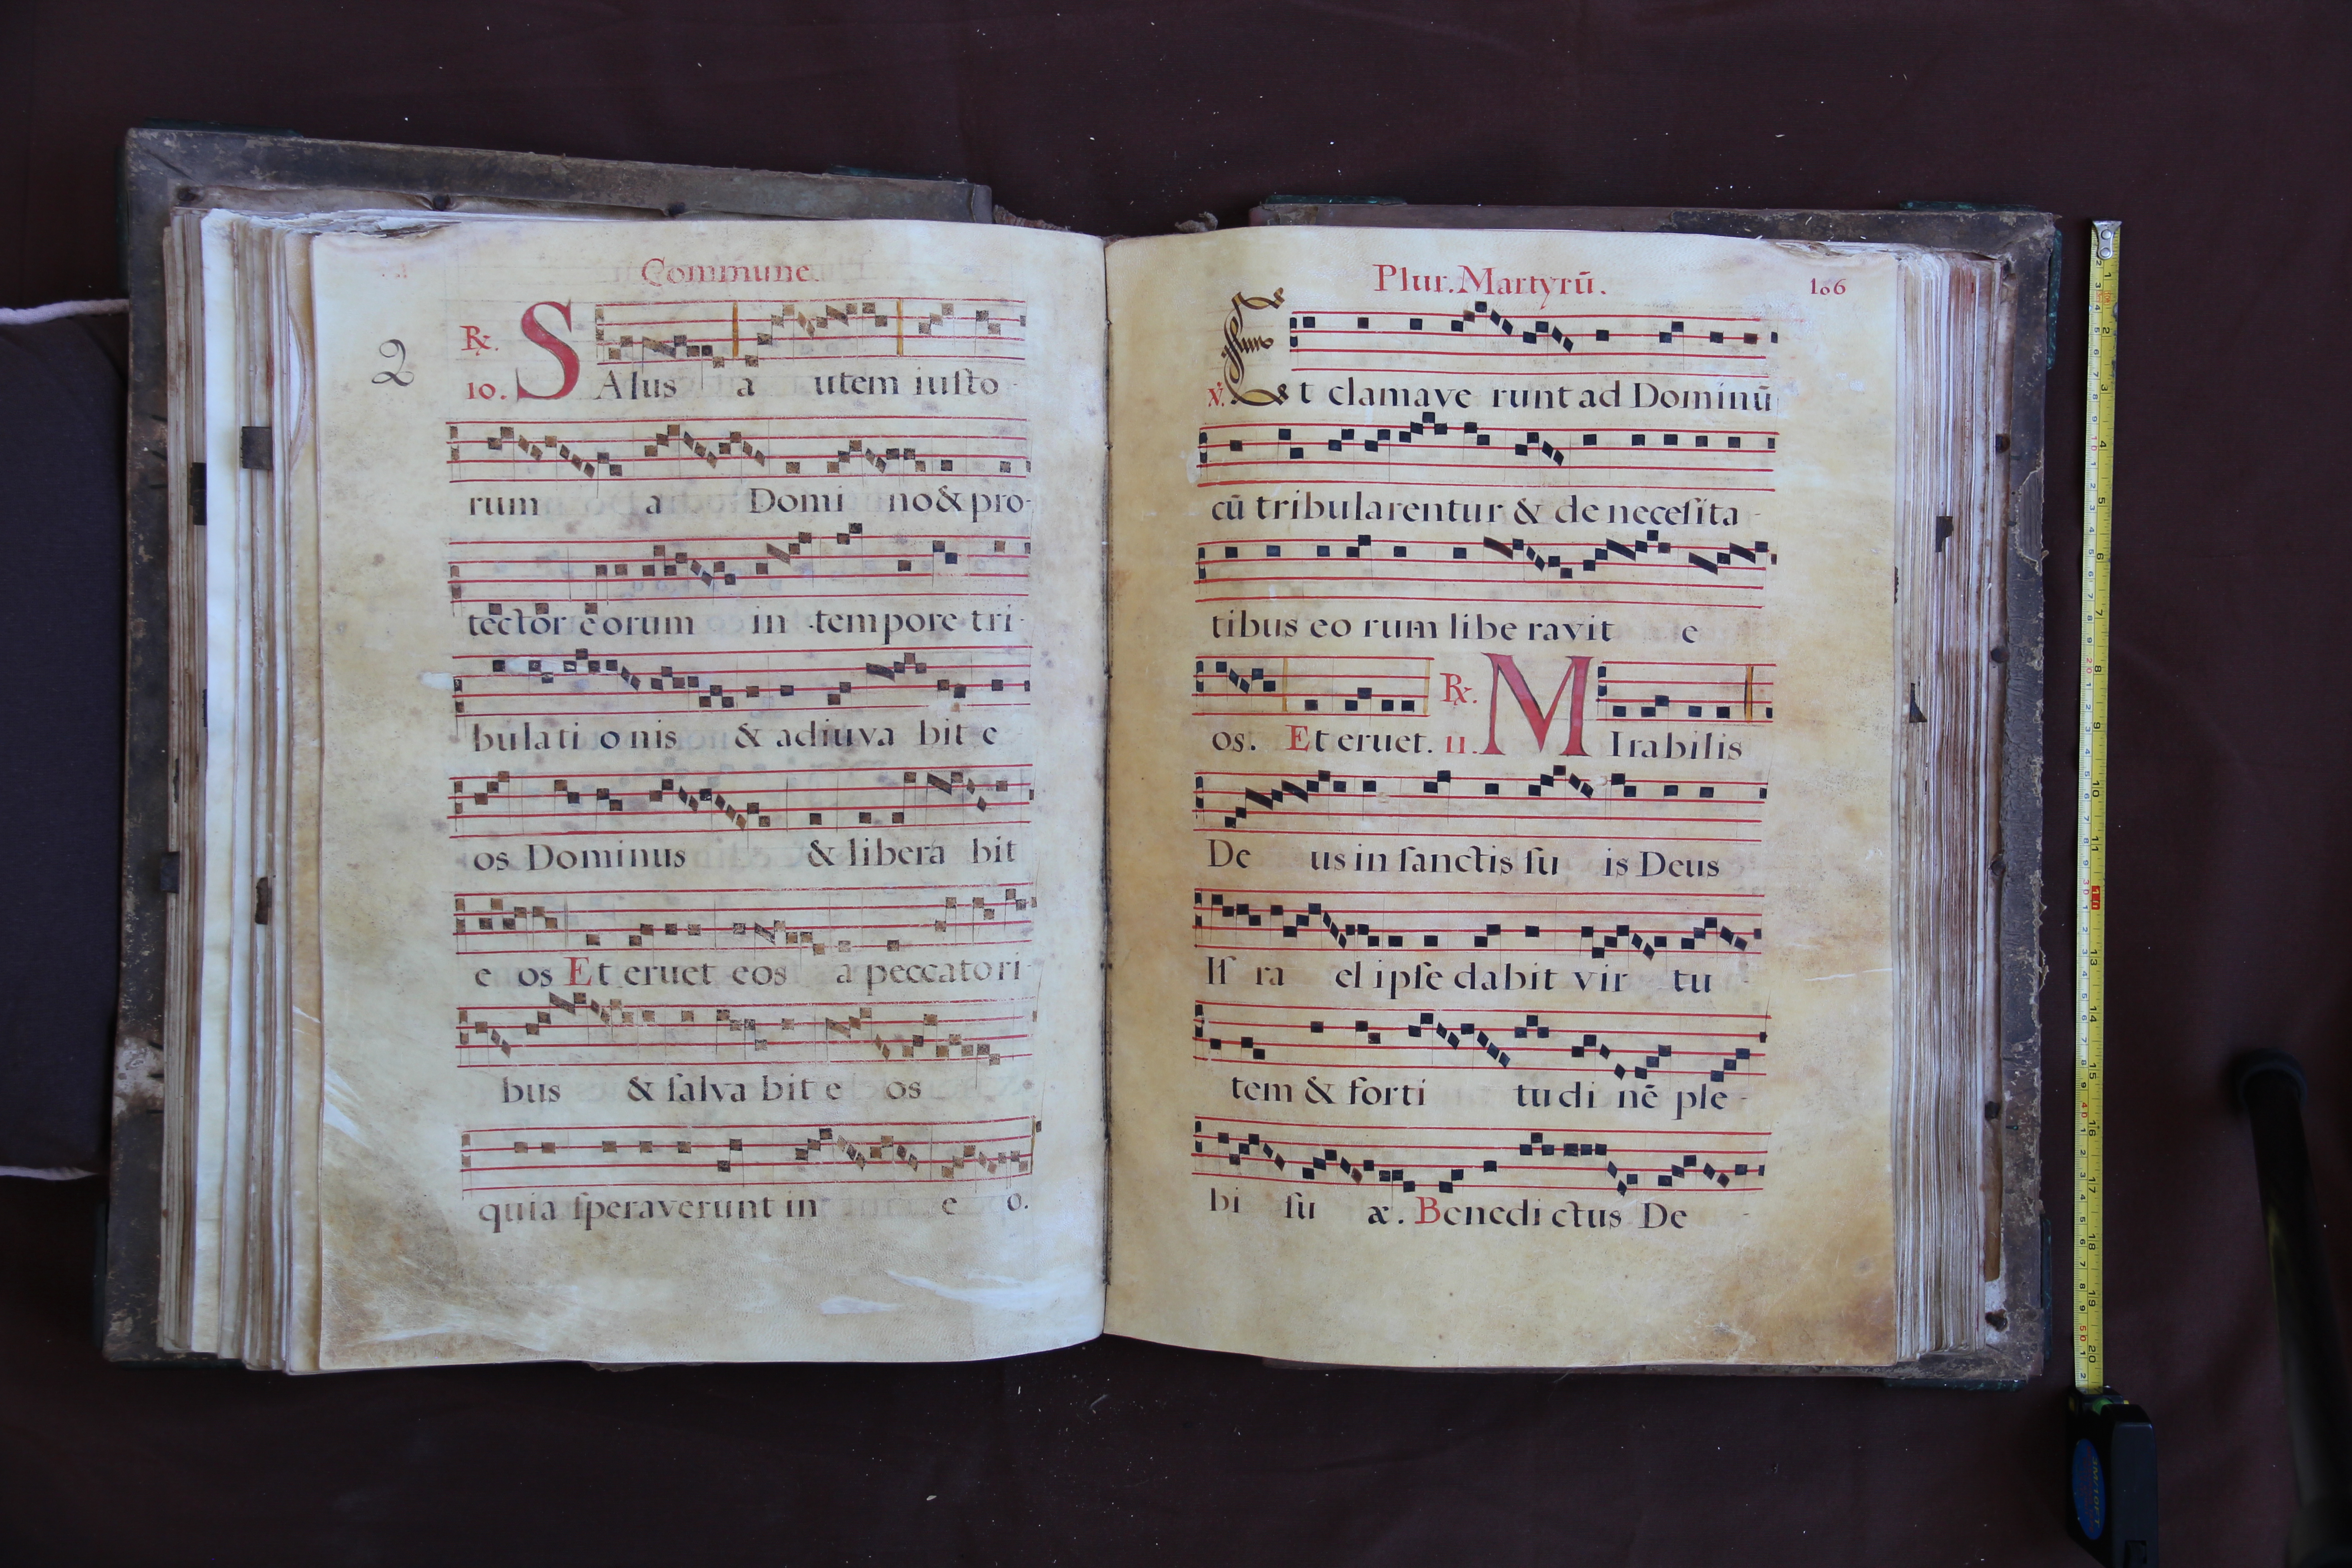 Commune.
2
℟.
10. SAlus a utem iuſto-
rum a Domi no & pro-
tector eorum in tempore tri-
bulati onis & adiuva bit e-
os Dominus & libera bit
e os Et eruet eos a peccatori-
bus & ſalva bit e os
quia ſperaverunt in e o.
Plur. Martyrū. 106
℣. Et clamave runt ad Dominū
cū tribularentur & de neceſita-
tibus eo rum libe ravit e-
os. Et eruet. ℟. 11. MIrabilis
De us in ſanctis ſu is Deus
Iſ ra el ipſe dabit vir tu-
tem & forti tudi nē ple-
bi ſu æ. Benedi ctus De-